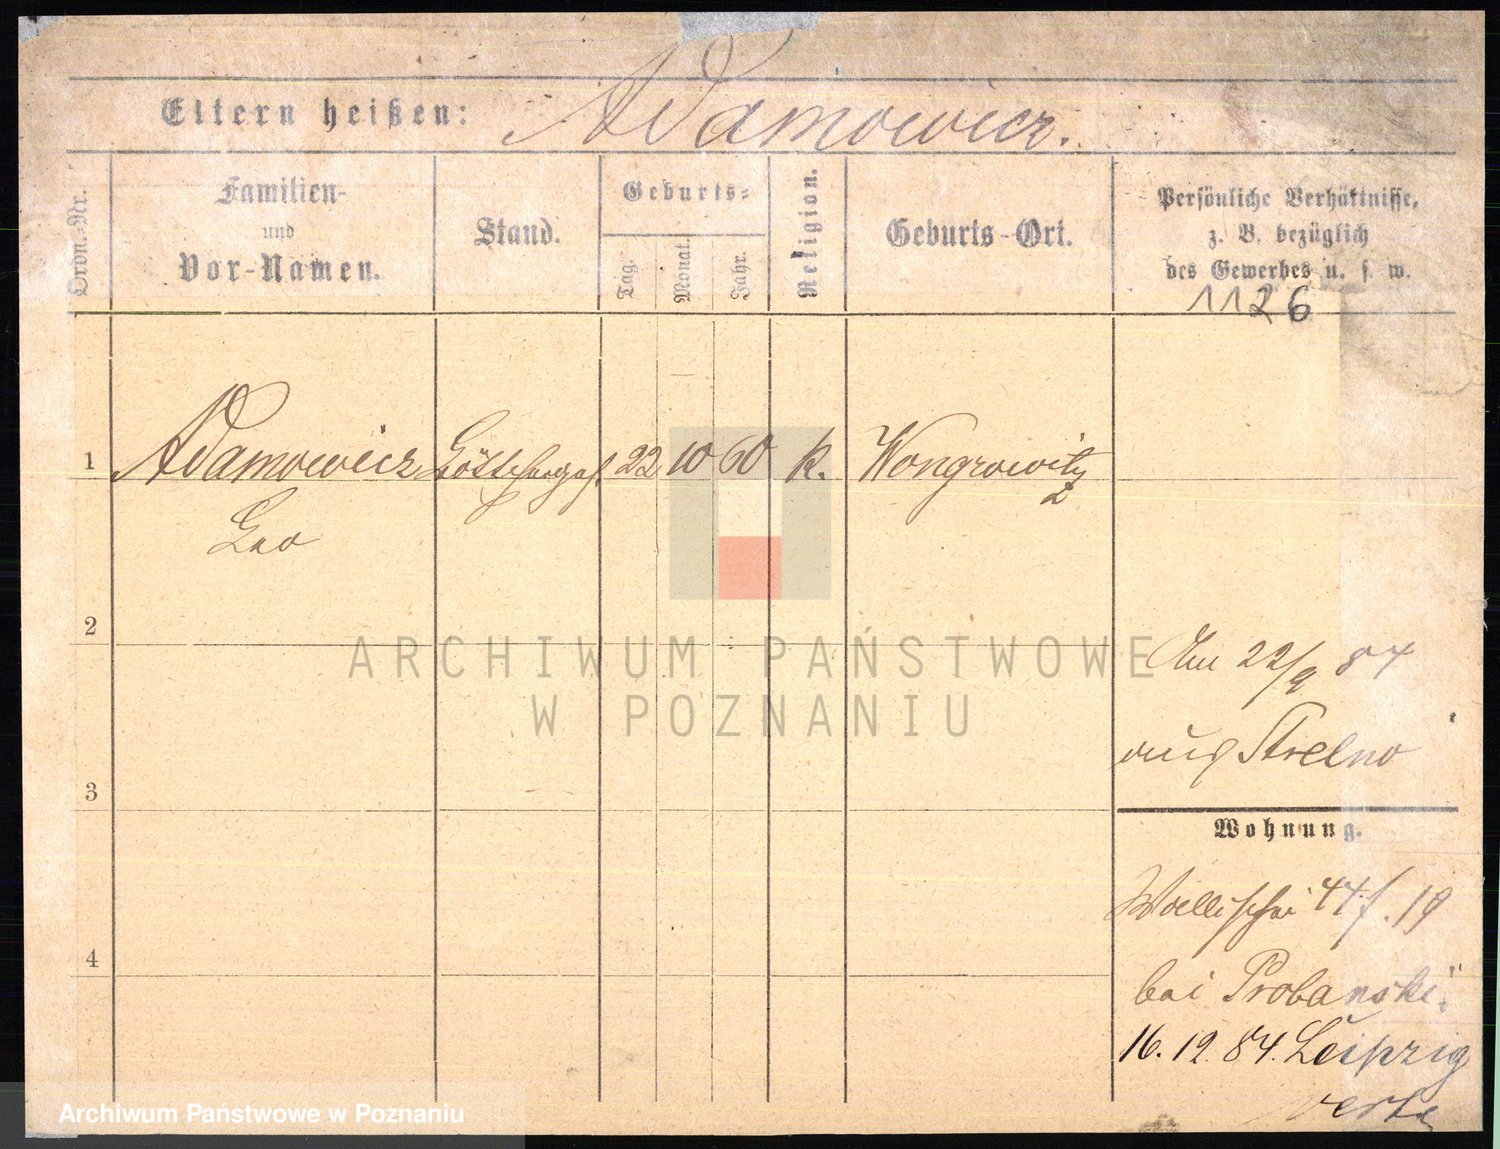 Eltern heißen: Adamowicz.
Ordn.-Nr.
Familien-
und
Vor-Namen.
Stand.
Geburts-
Tag.
Monat.
Jahr.
Religion.
Geburts-Ort.
Persönliche Verhältnisse,
z. B. bezüglich
des Gewerbes u. s. w.
1126
1 Adamowicz Böttcherges. 22 10 60 k. Wongrowitz
Leo
2
Am 22/9 84
aus Strelno
3
Wohnung.
Wallischei 44/ . 19
4
bei Probanski.
16. 12. 84. Leipzig
ARCHIWUM PAŃSTWOWE
W POZNANIU
Archiwum Państwowe w Poznaniu